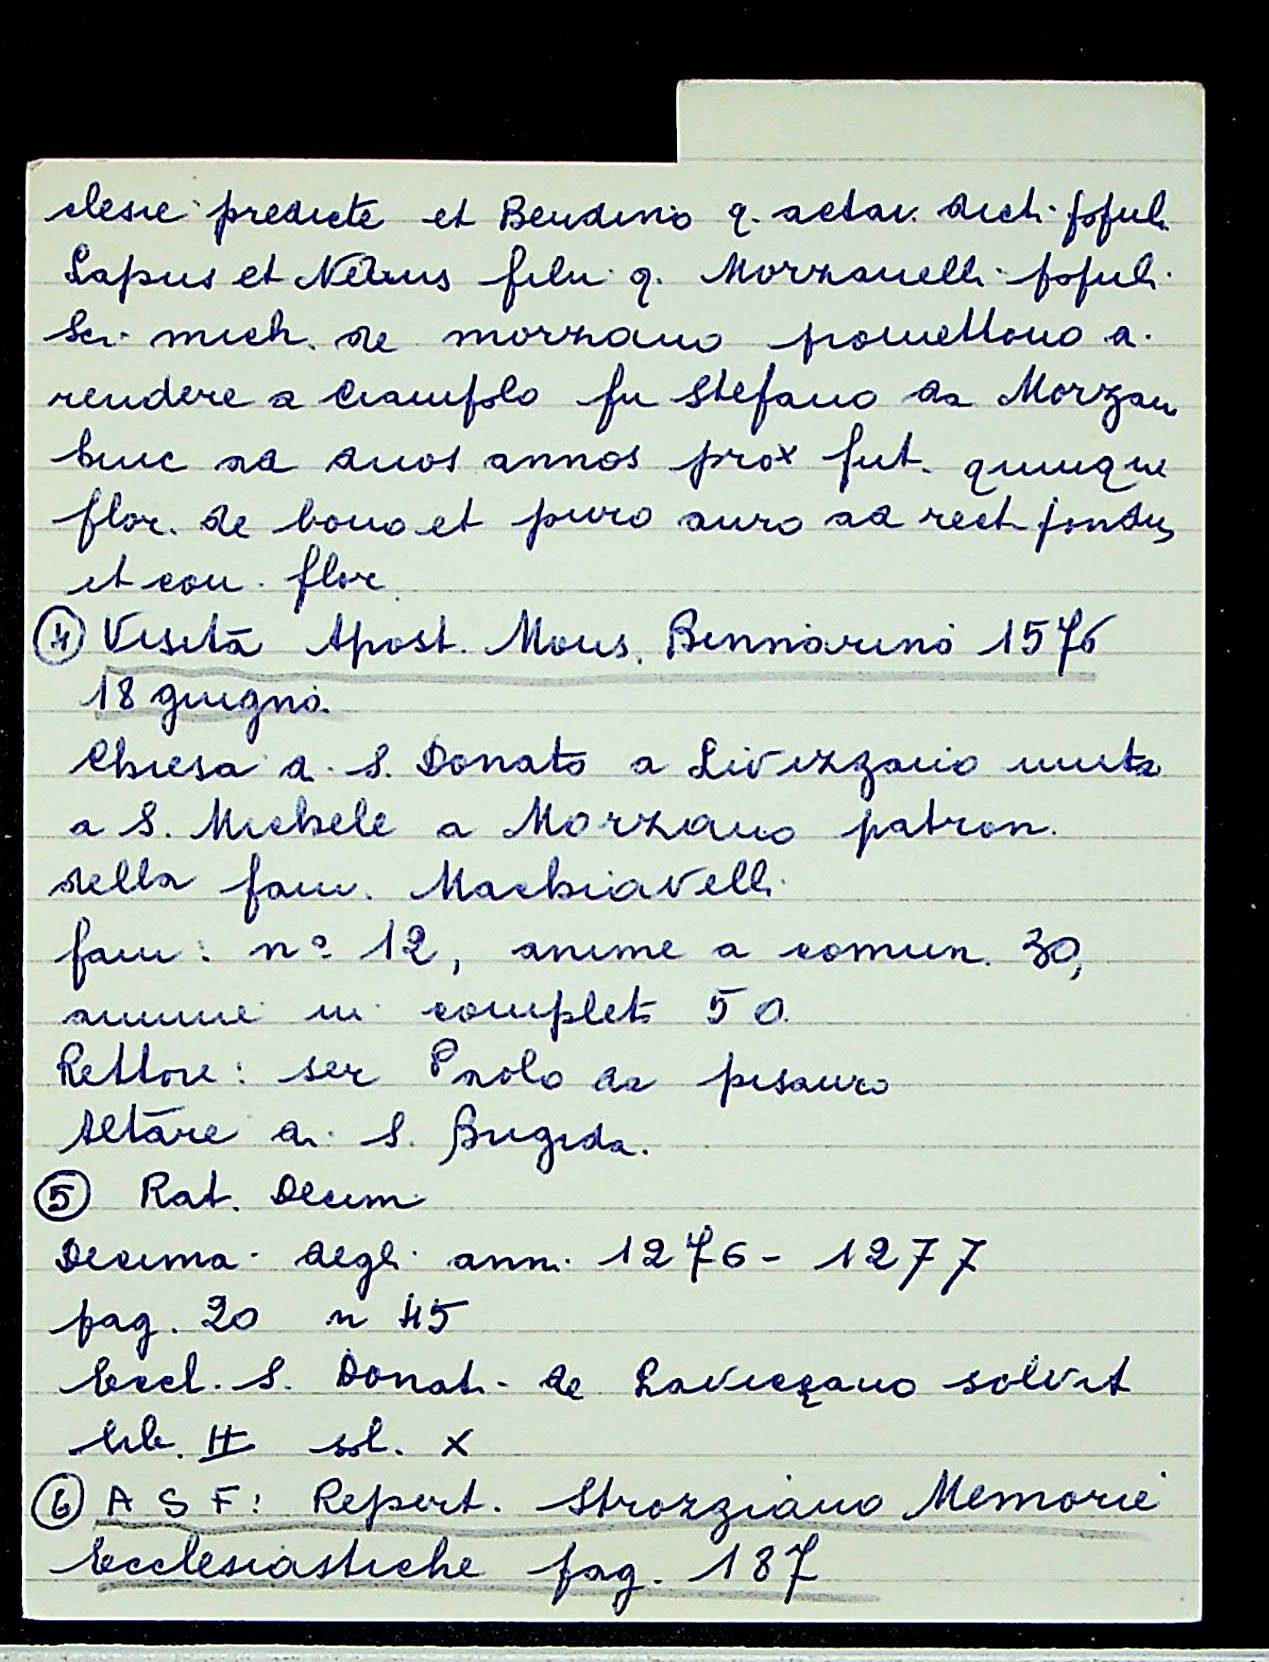 clesie predicte et Bendino q. actav. dicti populi
Lapus et Nerus filii q. Morzanelli populi
Sci. mich. de morzano promettono di
rendere a Ciampolo fu Stefano da Morzano
hinc ad duos annos prox fut. quinque
flor. de bono et puro auro ad rect. pondus
et con. flor.
④ Visita Apost. Mons. Binnarino 1576
18 giugno
Chiesa di S. Donato a Livizzano unita
a S. Michele a Morzano patron.
della fam. Machiavelli
fam: n° 12, anime a comun. 30,
anime in complet 50
Rettore: ser Paolo da pisauro
Altare di S. Brigida.
⑤ Rat. Decim
Decima degli anni 1276 - 1277
pag. 20 n 45
Eccl. S. Donati de Lavizzano solvit
lib. II sol. X
⑥ A S F: Repert. Strozziano Memorie
Ecclesiastiche pag. 187